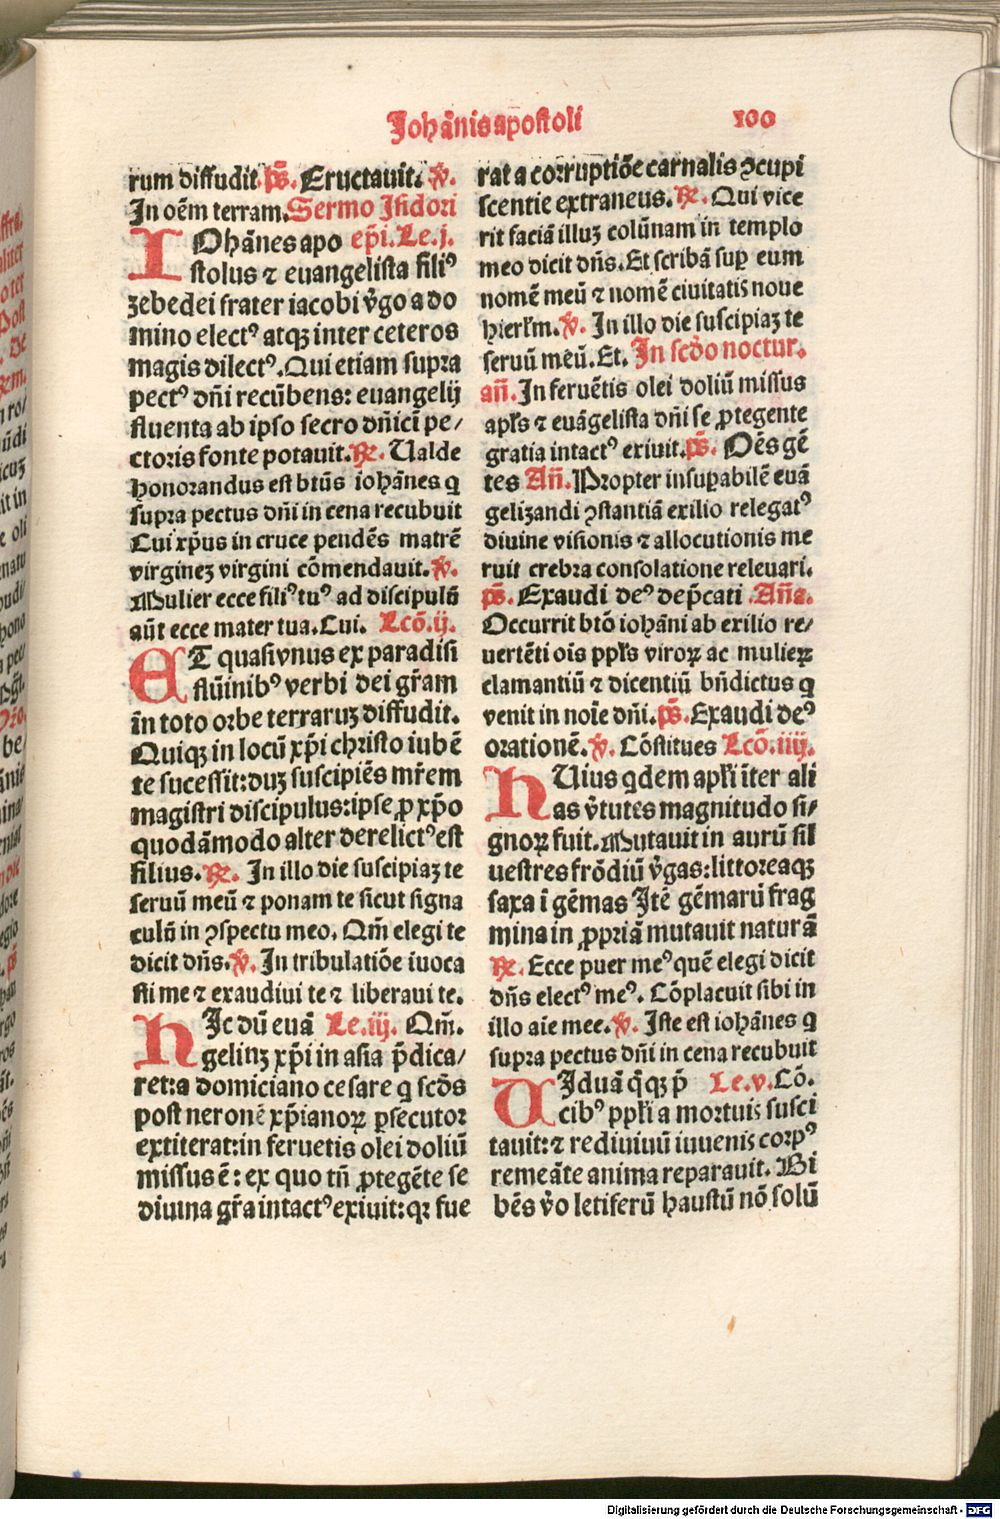 Johãnis apostoli 100
rum diffudit. p̃s. Eructauit. v̾.
In oẽm terram. Sermo Isidori
IOhãnes apo epĩ. Le. j.
stolus ⁊ euangelista filiꝰ
zebedei frater iacobi v̾go a do
mino electꝰ atqꝫ inter ceteros
magis dilectꝰ. Qui etiam supra
pectꝰ dñi recũbens: euangelij
fluenta ab ipso secro dñici pe/
ctoris fonte potauit. ℞. Ualde
honorandus est btũs iohãnes q
supra pectus dñi in cena recubuit
Cui xp̃us in cruce pendẽs matrẽ
virgineꝫ virgini cõmendauit. v̾.
Mulier ecce filiꝰ tuꝰ ad discipulũ
aũt ecce mater tua. Cui. Lcõ. ij.
ET quasi vnus ex paradisi
flũinibꝰ verbi dei gr̃am
in toto orbe terraruꝫ diffudit.
Quiqꝫ in locũ xp̃i christo iubẽ
te sucessit: duꝫ suscipiẽs mr̃em
magistri discipulus: ipse ꝓ xp̃o
quodãmodo alter derelictꝰ est
filius. ℞. In illo die suscipiaꝫ te
seruũ meũ ⁊ ponam te sicut signa
culũ in ꝯspectu meo. Qm̃ elegi te
dicit dñs. v̾. In tribulatiõe iuoca
sti me ⁊ exaudiui te ⁊ liberaui te.
HIc dũ euã Le. iij. Qm̃.
geliuꝫ xp̃i in asia p̃dica/
ret: a domiciano cesare q scd̃s
post neronẽ xp̃ianoꝝ ꝑsecutor
extiterat: in feruetis olei doliũ
missus ẽ: ex quo tñ ꝓtegẽte se
diuina gr̃a intactꝰ exiuit: qꝛ fue
rat a corruptiõe carnalis ꝯcupi
scentie extraneus. ℞. Qui vice
rit faciã illuꝫ colũnam in templo
meo dicit dñs. Et scribã suꝑ eum
nomẽ meũ ⁊ nomẽ ciuitatis noue
hierl̃m. v̾. In illo die suscipiaꝫ te
seruũ meũ. Et. In scd̃o noctur.
añ. In feruẽtis olei doliũ missus
apl̃s ⁊ euãgelista dñi se ꝓtegente
gratia intactꝰ exiuit. p̃s. Oẽs gẽ
tes Añ. Propter insuꝑabilẽ euã
gelizandi ꝯstantiã exilio relegatꝰ
diuine visionis ⁊ allocutionis me
ruit crebra consolatione releuari.
p̃s. Exaudi deꝰ dep̃cati. Añа.
Occurrit btõ iohãni ab exilio re/
uertẽti oĩs ppl̃s viroꝝ ac mulieꝝ
clamantiũ ⁊ dicentiũ bñdictus q
venit in noĩe dñi. p̃s. Exaudi deꝰ
orationẽ. v̾. Cõstitues Lcõ. iiij.
HUius qdem apl̃i ĩter ali
as v̾tutes magnitudo si/
gnoꝝ fuit. Mutauit in aurũ sil
uestres frõdiũ v̾gas: littoreaqꝫ
saxa ĩ gẽmas Itẽ gẽmarũ frag
mina in ꝓpriã mutauit naturã
℞. Ecce puer meꝰ quẽ elegi dicit
dñs electꝰ meꝰ. Cõplacuit sibi in
illo aĩe mee. v̾. Iste est iohãnes q
supra pectus dñi in cena recubuit
UIduã q̃qꝫ p̃ Le. v. Cõ.
cibꝰ ppl̃i a mortuis susci
tauit: ⁊ rediuiuũ iuuenis corpꝰ
remeãte anima reparauit. Bi
bẽs v̾o letiferũ haustũ nõ solũ
Digitalisierung gefördert durch die Deutsche Forschungsgemeinschaft - DFG